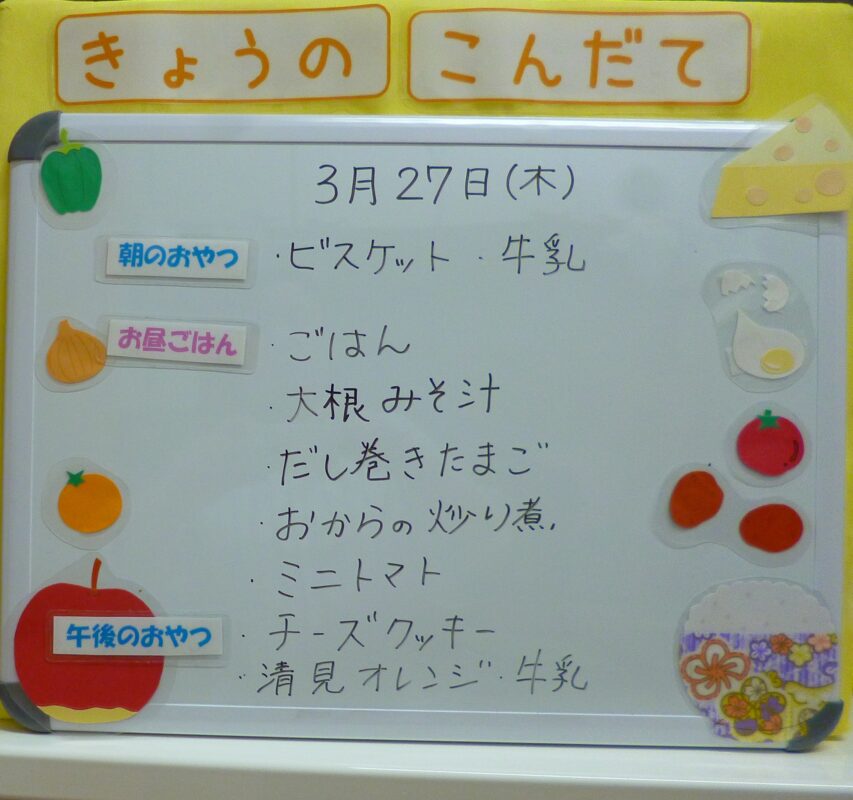 きょうの こんだて
3月27日(木)
朝のおやつ ・ビスケット ・牛乳
お昼ごはん ・ごはん
・大根みそ汁
・だし巻きたまご
・おからの炒り煮
・ミニトマト
午後のおやつ ・チーズクッキー
・清見オレンジ・牛乳